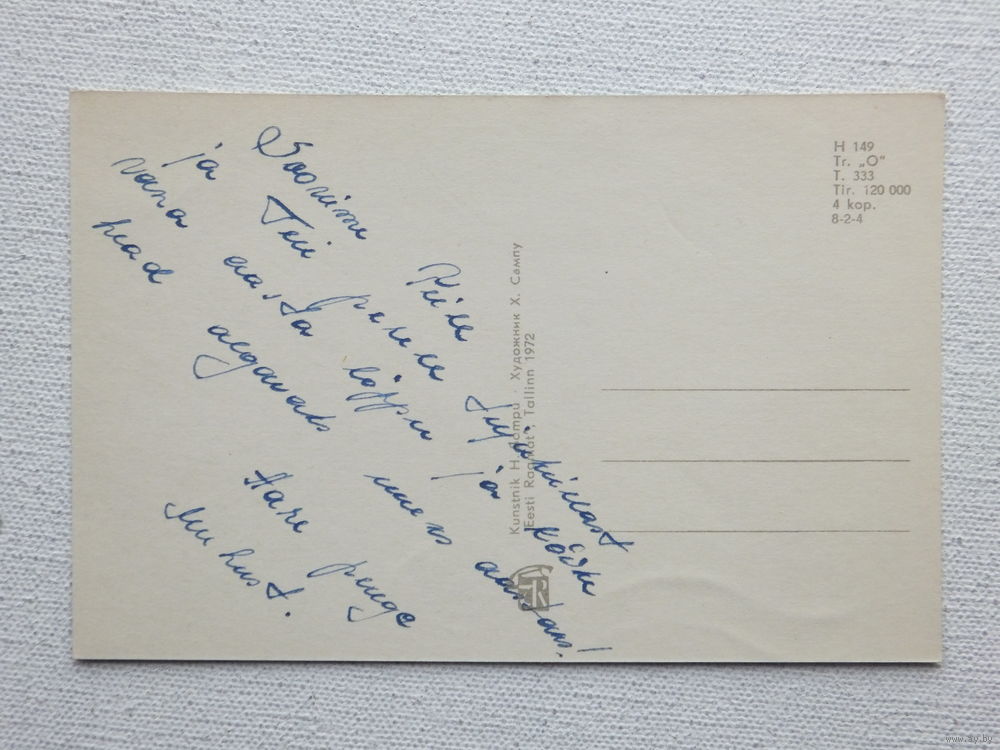 Soovime Piile südamlikult
ja Teie perele
vana aasta lõppu ja kõike
head algavaks uueks aastaks!
Aare perega
H 149
Tr. „O"
T. 333
Tir. 120 000
4 kop.
8-2-4
Kunstnik H. Sampu · Художник Х. Сампу
Eesti Raamat", Tallinn 1972
www.ay.by